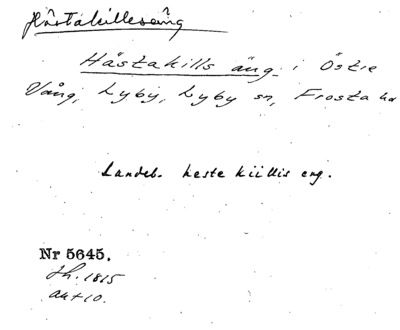 Hästakillesäng
Hästakills äng i Östre
Vång, Lyby, Lyby sn, Frosta hd
Landeb. heste kiillis eng.
Nr 5645.
Lh. 1815
akt 10.